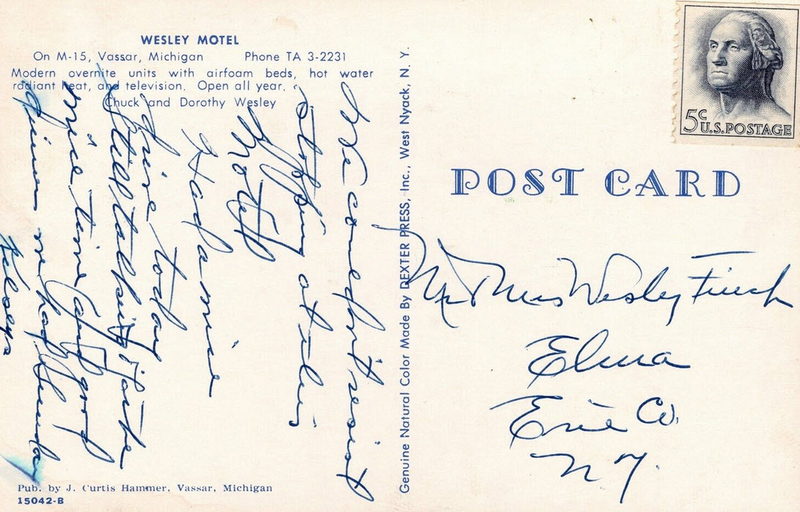 WESLEY MOTEL
On M-15, Vassar, Michigan Phone TA 3-2231
Modern overnite units with airfoam beds, hot water
radiant heat, and television. Open all year.
Chuck and Dorothy Wesley
We couldn't resist
stopping at this
Motel
Had a nice
drive today
Still talking of the
nice time and good
dinner we had Sunday
Kelseys
Pub. by J. Curtis Hammer, Vassar, Michigan
15042-B
Genuine Natural Color Made By DEXTER PRESS, Inc., West Nyack, N. Y.
5c U.S. POSTAGE
POST CARD
Mr Mrs Wesley Finch
Elma
Erie Co.
N Y.